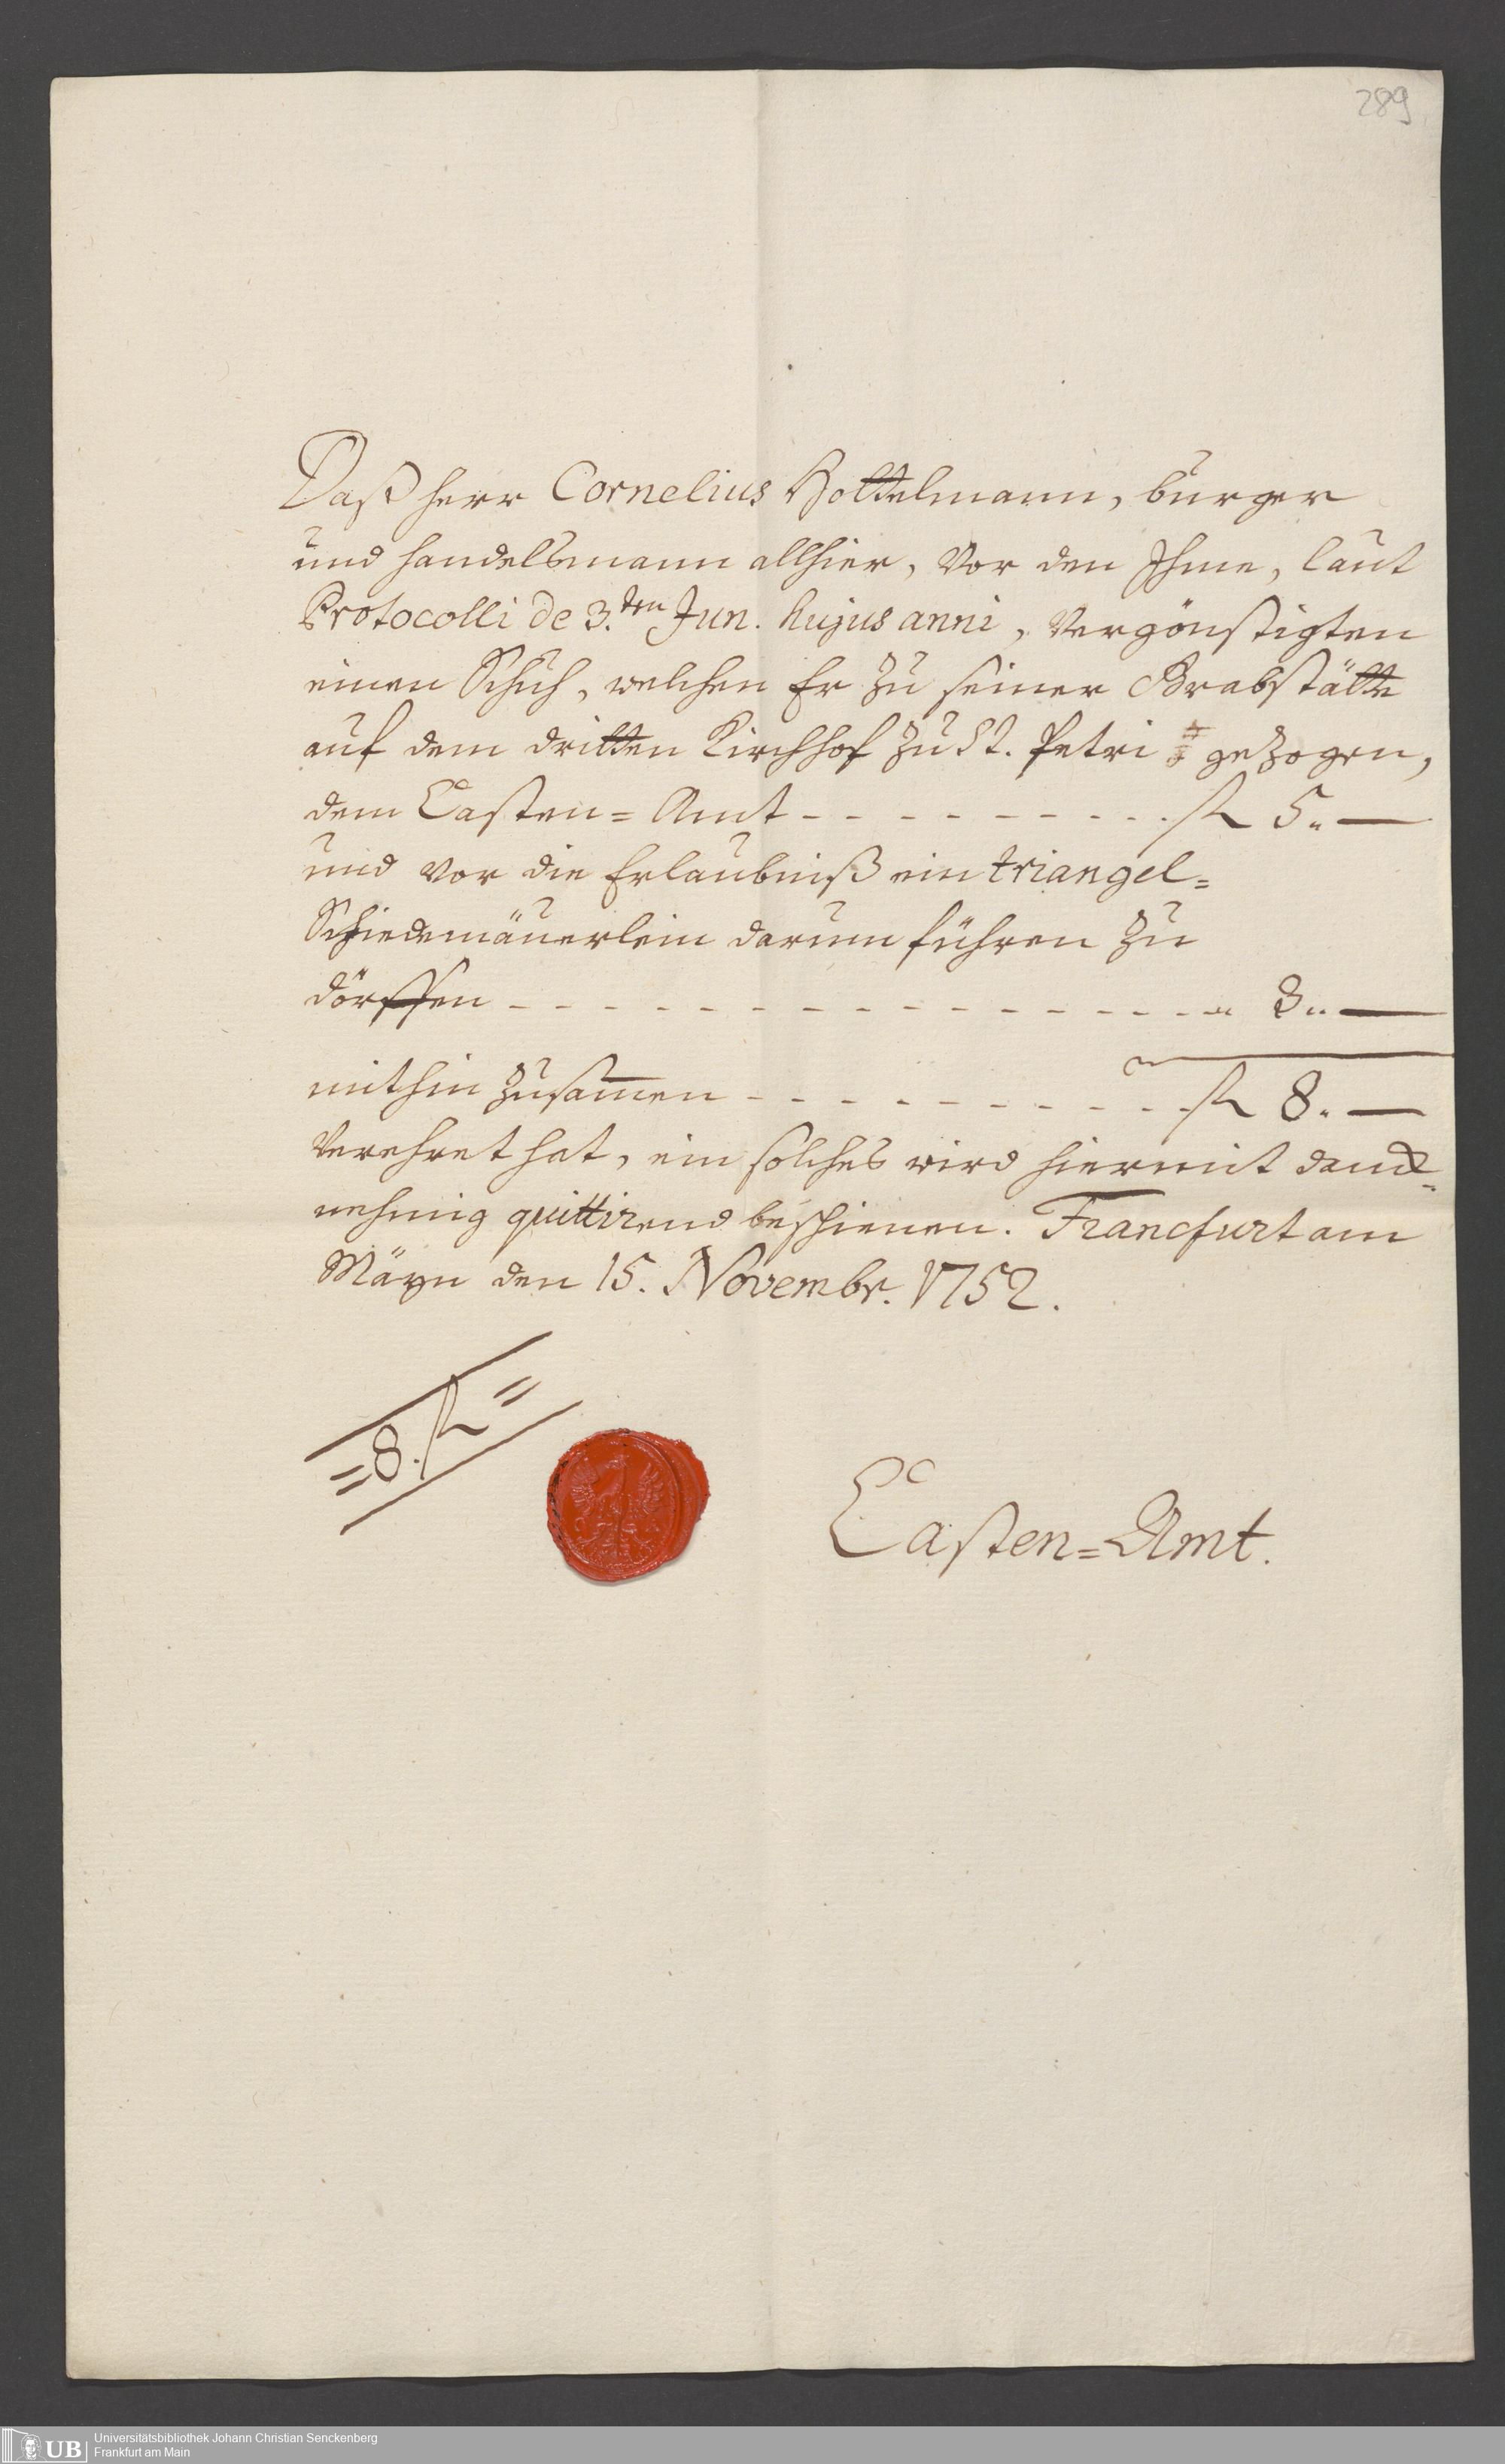 289
Daß Herr Cornelius Hottelmann, burger
und Handelsmann allhier, Vor den Ihme, laut
Protocolli de 3.ten Jun. hujus anni, Vergönstigten
einen Schuh, welchen Er zu seiner Grabstätte
auf dem dritten Kirchhof zu St. Petri gezogen,
dem Casten=Amt - - - - - - - - - f 5.. —
und vor die Erlaubniß ein triangel=
Schiedemäuerlein darum führen zu
dörffen - - - - - - - - - - - - - - " 3.. —
mithin zusam̄en - - - - - - - - - - f 8.. —
Verehret hat, ein solches wird hiermit danck=
nehmig quittirend beschienen. Franckfurt am
Mäyn den 15. Novembr. 1752.
=8. f=
Casten=Amt.
UB
Universitätsbibliothek Johann Christian Senckenberg
Frankfurt am Main